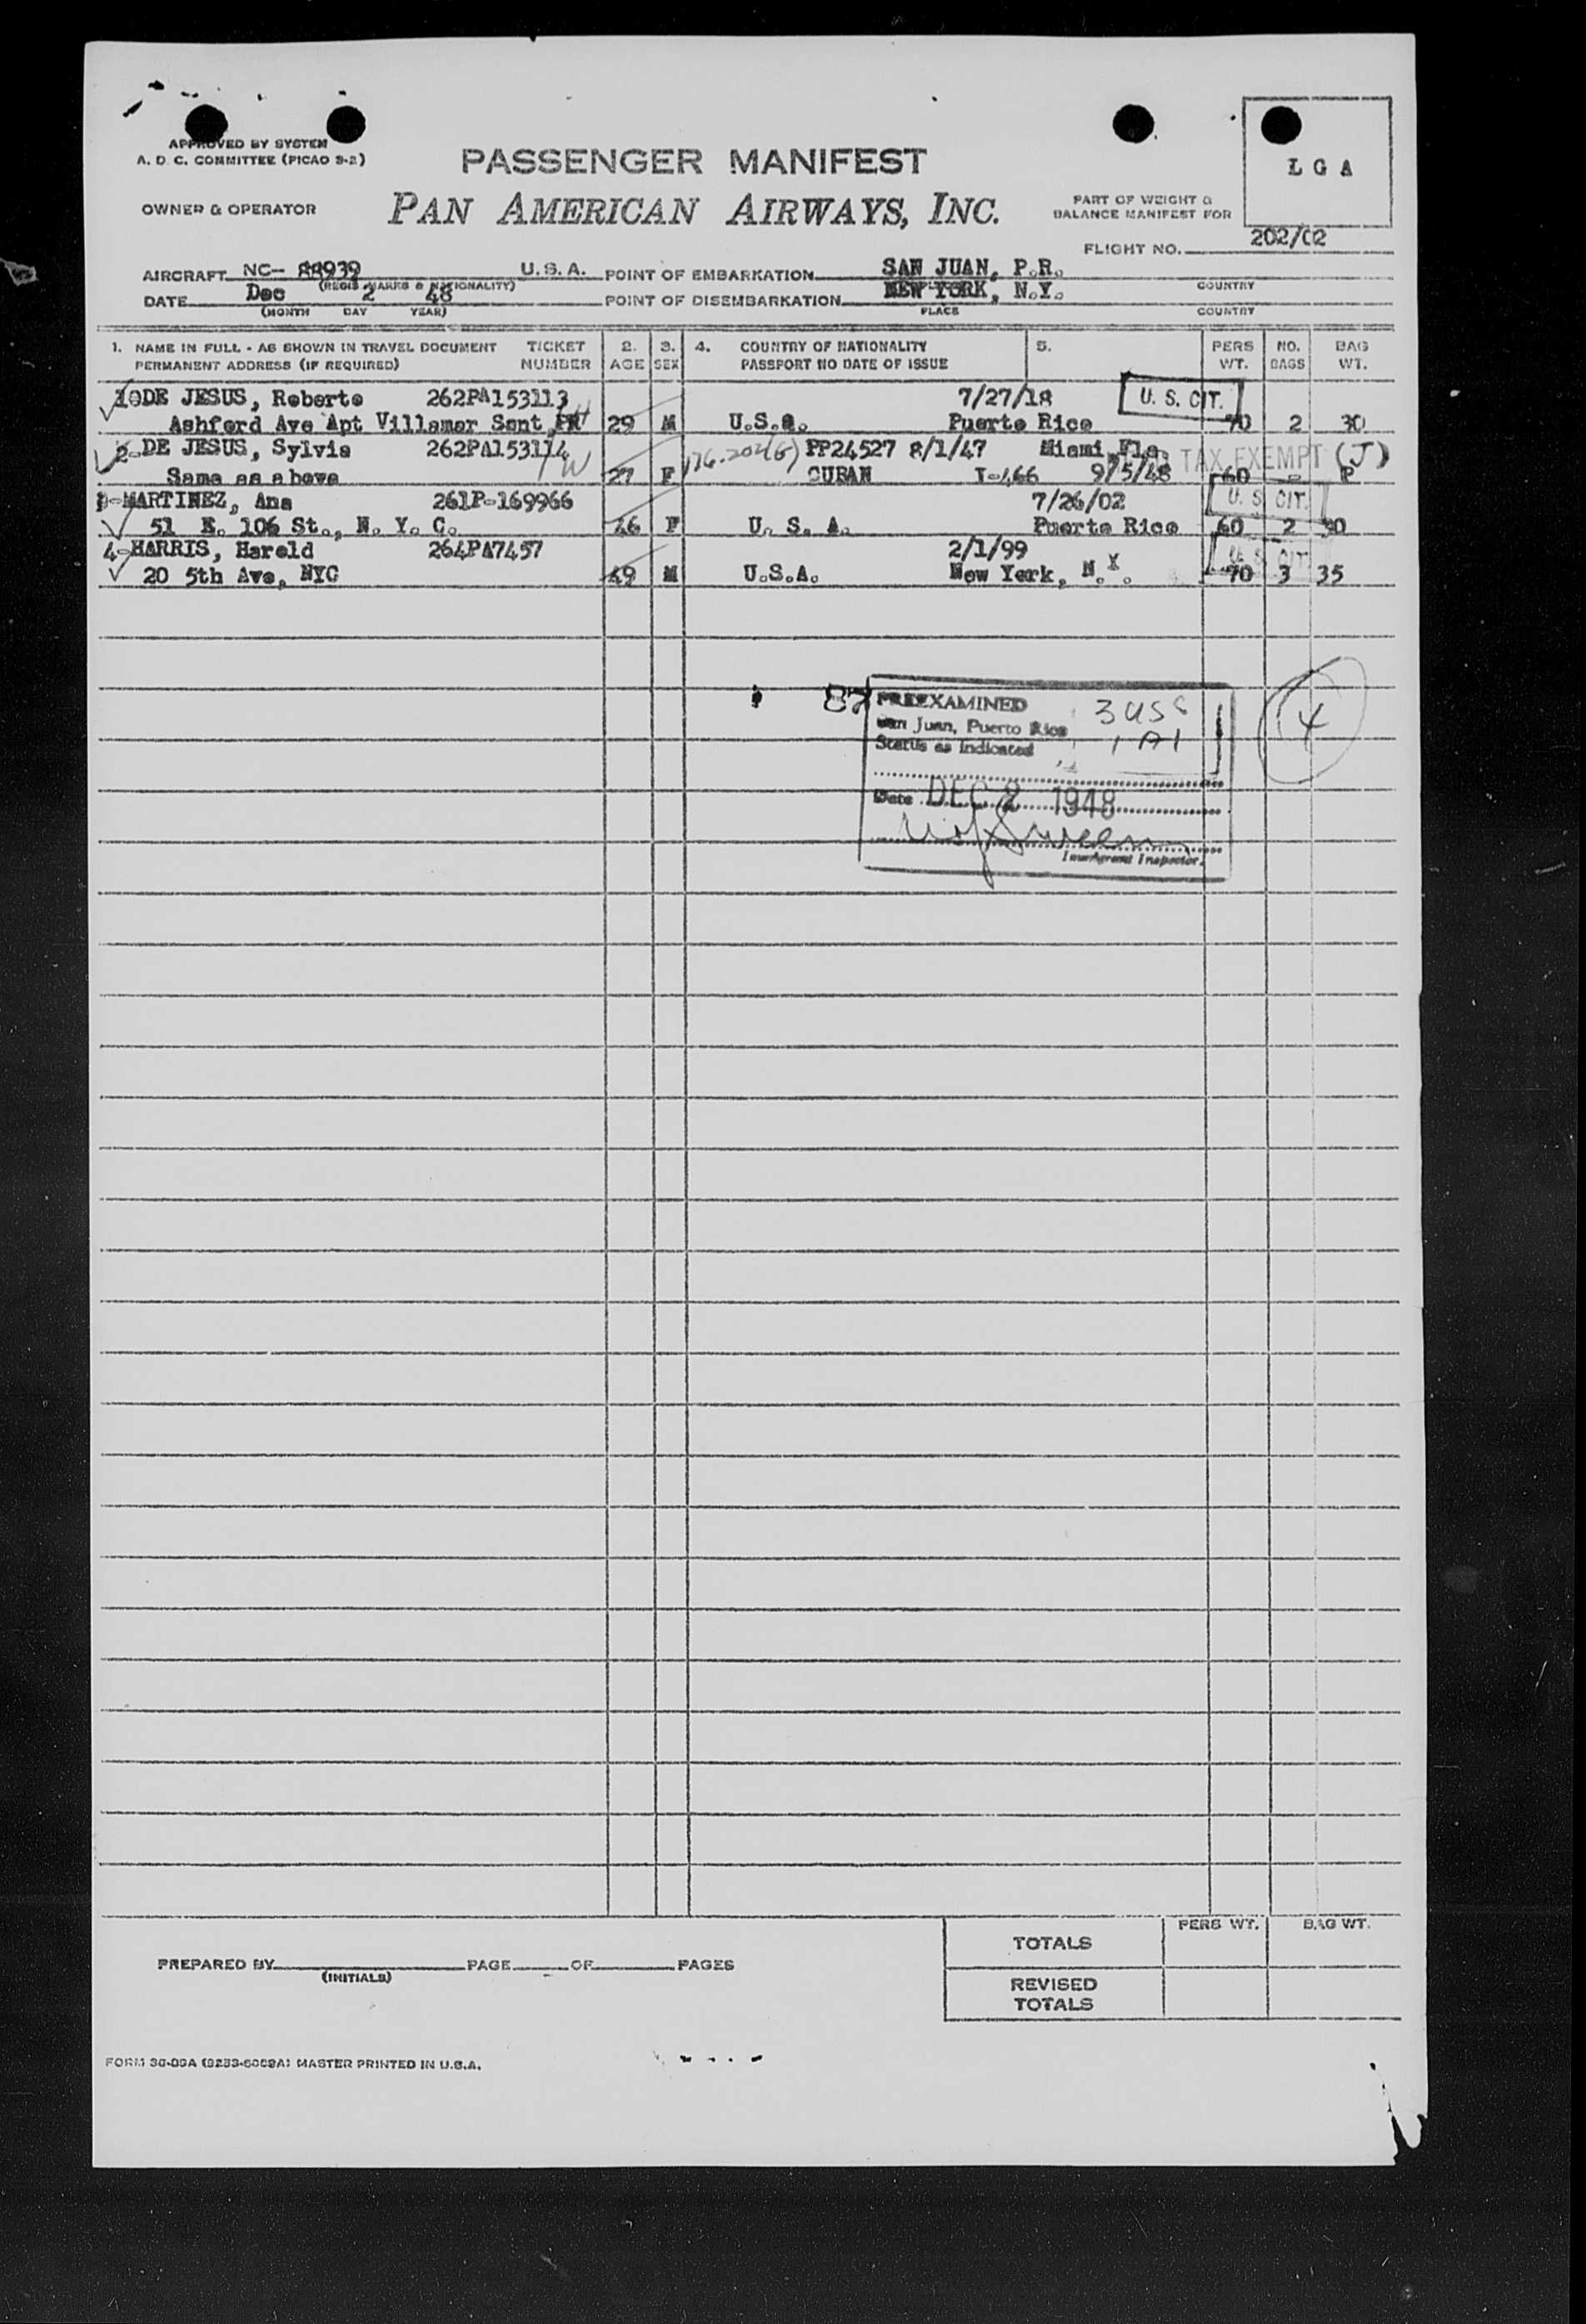 APPROVED BY SYSTEM
A. D. C. COMMITTEE (PICAO S-2)
PASSENGER MANIFEST
LGA
OWNER & OPERATOR
PAN AMERICAN AIRWAYS, INC.
PART OF WEIGHT &
BALANCE MANIFEST FOR
FLIGHT NO. 202/02
AIRCRAFT NC- 88939 U.S.A. POINT OF EMBARKATION SAN JUAN, P.R.
(REGIS MARKS & NATIONALITY) COUNTRY
DATE Dec 2 48 POINT OF DISEMBARKATION NEW YORK, N.Y.
(MONTH DAY YEAR) PLACE COUNTRY
1. NAME IN FULL - AS SHOWN IN TRAVEL DOCUMENT TICKET 2. 3. 4. COUNTRY OF NATIONALITY 5. PERS NO. BAG
PERMANENT ADDRESS (IF REQUIRED) NUMBER AGE SEX PASSPORT NO DATE OF ISSUE WT. BAGS WT.
DE JESUS, Roberto 262PA153113 7/27/18 U. S. CIT.
Ashford Ave Apt Villamar Sant PR 29 M U.S.a. Puerto Rico 70 2 30
2- DE JESUS, Sylvia 262PA153114 176.202(G) PP24527 8/1/47 Miami, Fla. TAX EXEMPT (J)
Same as above 27 F CUBAN I-466 9/5/48 60 - P
MARTINEZ, Ana 261P-169966 7/26/02 U. S. CIT.
51 E. 106 St., N. Y. C. 46 F U. S. A. Puerto Rico 60 2 30
4-HARRIS, Harold 264PA7457 2/1/99 U. S. CIT.
20 5th Ave, NYC 49 M U.S.A. New York, N.Y. 70 3 35
87 PREEXAMINED 3 USC
San Juan, Puerto Rico
Status as indicated 1 A1
4
Date DEC 2 1948
Immigrant Inspector.
PERS WT. BAG WT.
TOTALS
PREPARED BY PAGE OF PAGES
(INITIALS)
REVISED
TOTALS
FORM 30-09A (9253-6059A) MASTER PRINTED IN U.S.A.